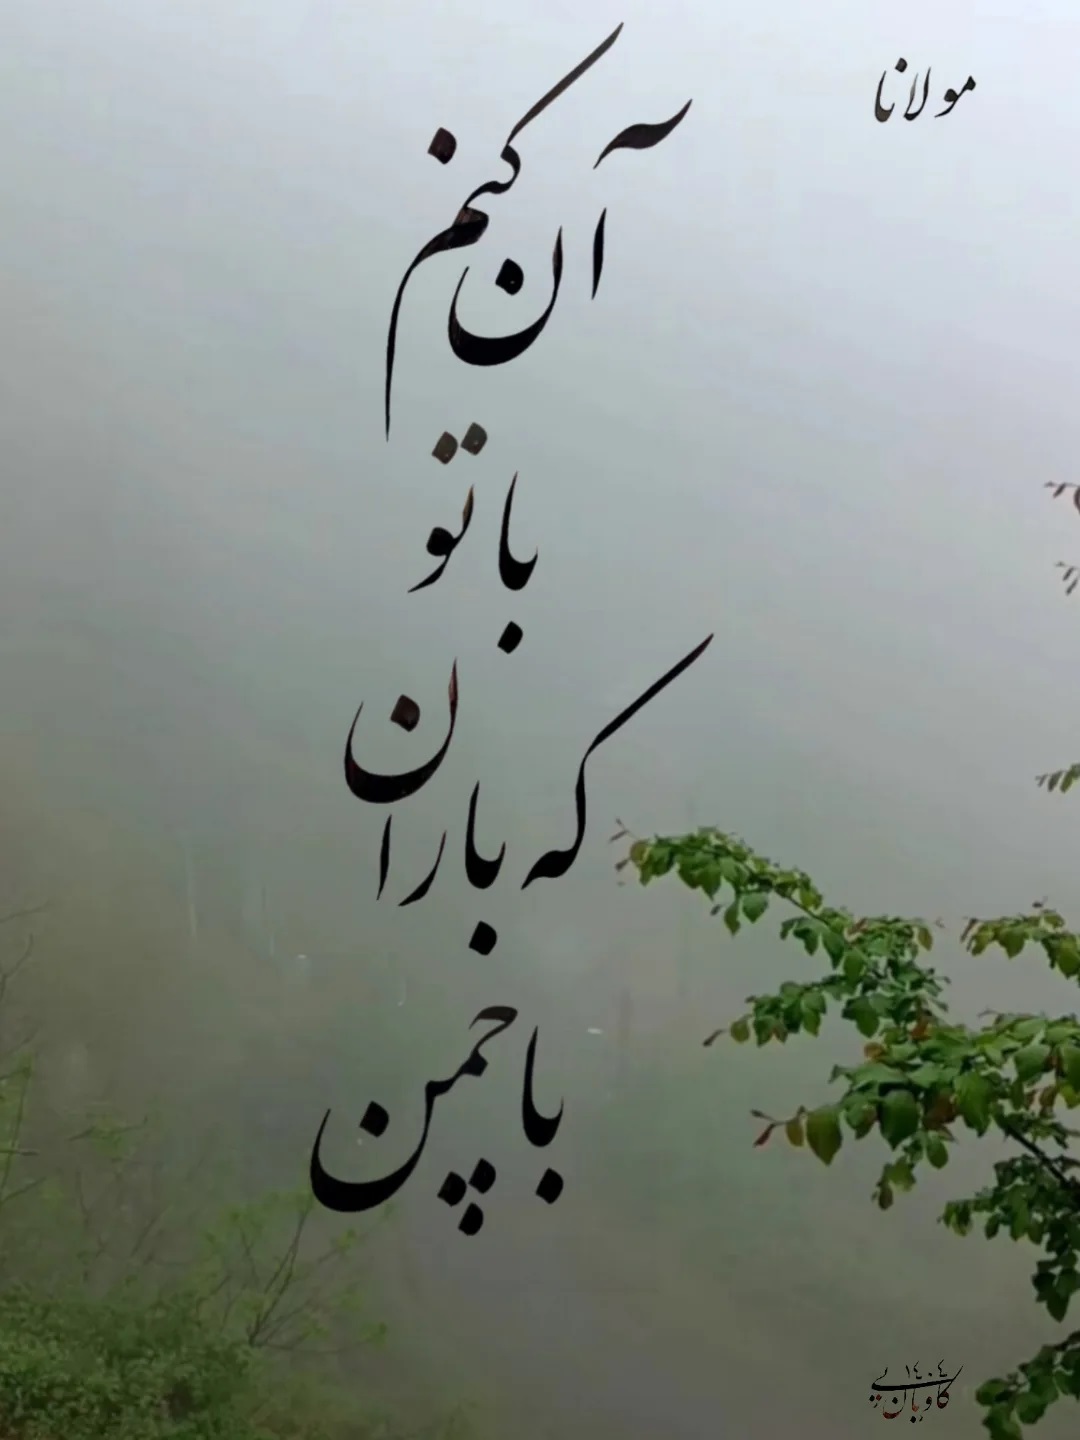 مولانا
آن کنم
با تو
که باران
با چمن
کاویان
۱۴۰۴